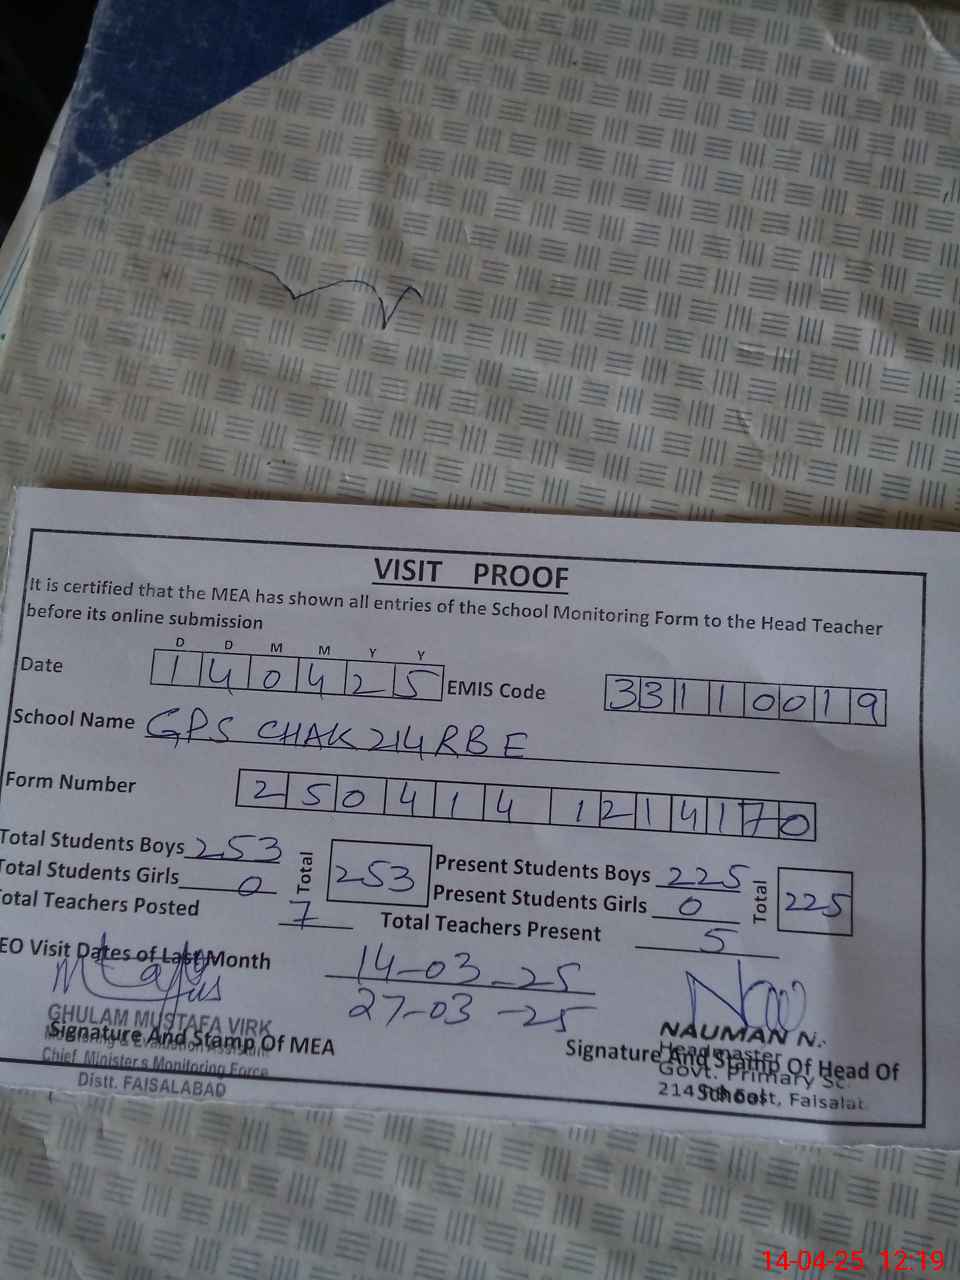 VISIT PROOF
It is certified that the MEA has shown all entries of the School Monitoring Form to the Head Teacher
before its online submission
D D M M Y Y
Date 1 4 0 4 2 5 EMIS Code 3 3 1 1 0 0 1 9
School Name GPS CHAK 214 RB E
Form Number 2 5 0 4 1 4 1 2 1 4 1 7 0
Total Students Boys 253 Total 253 Present Students Boys 225 Total 225
Total Students Girls 0 Present Students Girls 0
Total Teachers Posted 7 Total Teachers Present 5
EO Visit Dates of Last Month 14-03-25
27-03-25
GHULAM MUSTAFA VIRK
Signature And Stamp Of MEA
Monitoring & Evaluation
Chief Minister's Monitoring Force
Distt. FAISALABAD
NAUMAN N.
Headmaster
Signature And Stamp Of Head Of
School
Govt. Primary Sc
214 East, Faisalab
14-04-25 12:19